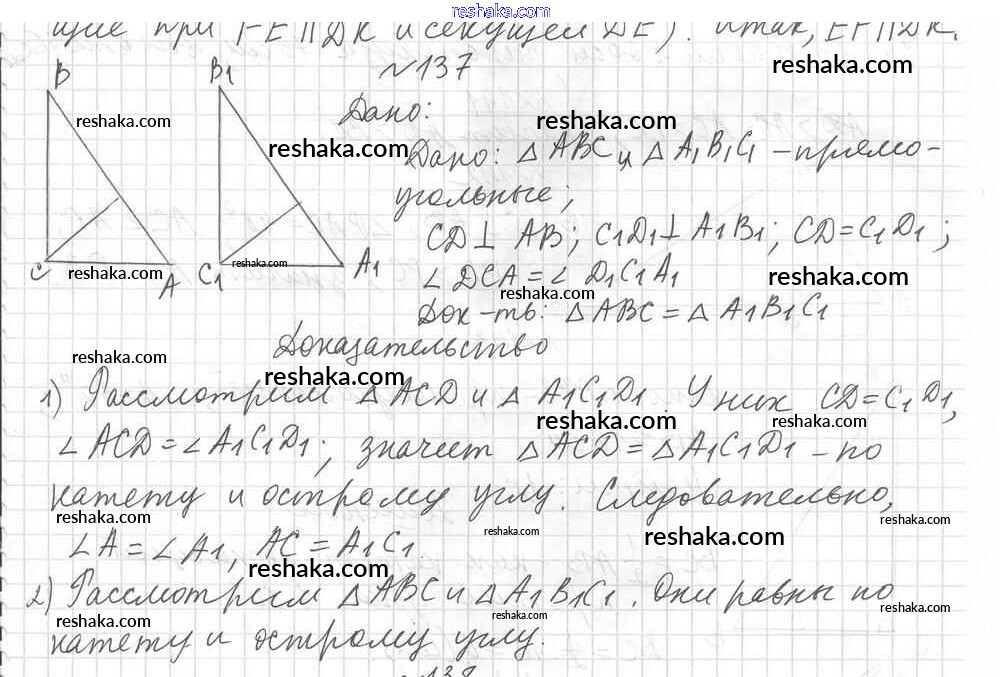 reshaka.com
щие при FE∥DK и секущей DE). Итак, EF∥DK.
№137
Дано:
Дано: △ABC и △A₁B₁C₁ – прямо-
угольные;
CD⊥AB; C₁D₁⊥A₁B₁; CD=C₁D₁;
∠DCA=∠D₁C₁A₁
Док-ть: △ABC=△A₁B₁C₁
B
B1
C
A
C1
A1
Доказательство
1) Рассмотрим △ACD и △A₁C₁D₁. У них CD=C₁D₁,
∠ACD=∠A₁C₁D₁; значит △ACD=△A₁C₁D₁ – по
катету и острому углу. Следовательно,
∠A=∠A₁, AC=A₁C₁.
2) Рассмотрим △ABC и △A₁B₁C₁. Они равны по
катету и острому углу.
138
reshaka.com
reshaka.com
reshaka.com
reshaka.com
reshaka.com
reshaka.com
reshaka.com
reshaka.com
reshaka.com
reshaka.com
reshaka.com
reshaka.com
reshaka.com
reshaka.com
reshaka.com
reshaka.com
reshaka.com
reshaka.com
reshaka.com
reshaka.com
reshaka.com